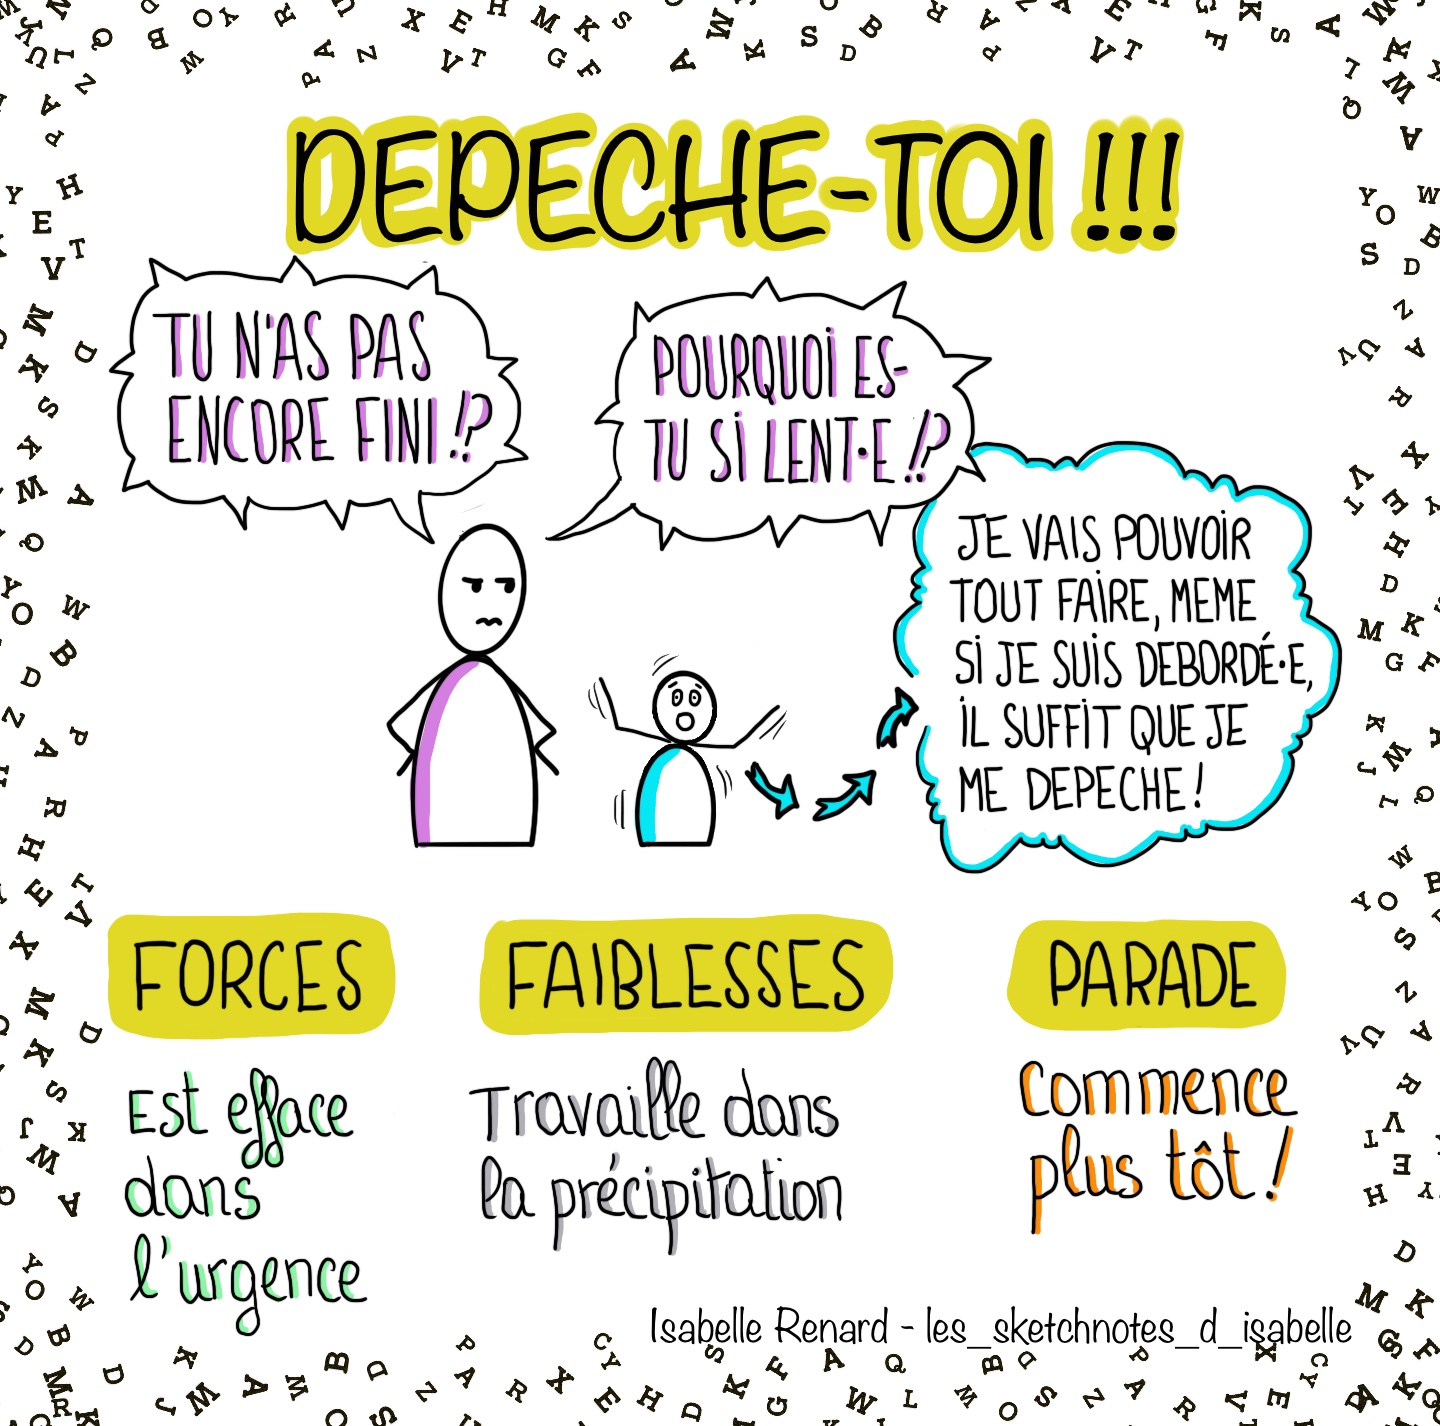 DEPECHE-TOI !!!
TU N'AS PAS
ENCORE FINI !?
POURQUOI ES-
TU SI LENT·E !?
JE VAIS POUVOIR
TOUT FAIRE, MEME
SI JE SUIS DEBORDÉ·E,
IL SUFFIT QUE JE
ME DEPECHE !
FORCES
Est efface
dans
l'urgence
FAIBLESSES
Travaille dans
la précipitation
PARADE
Commence
plus tôt !
Isabelle Renard - les_sketchnotes_d_isabelle